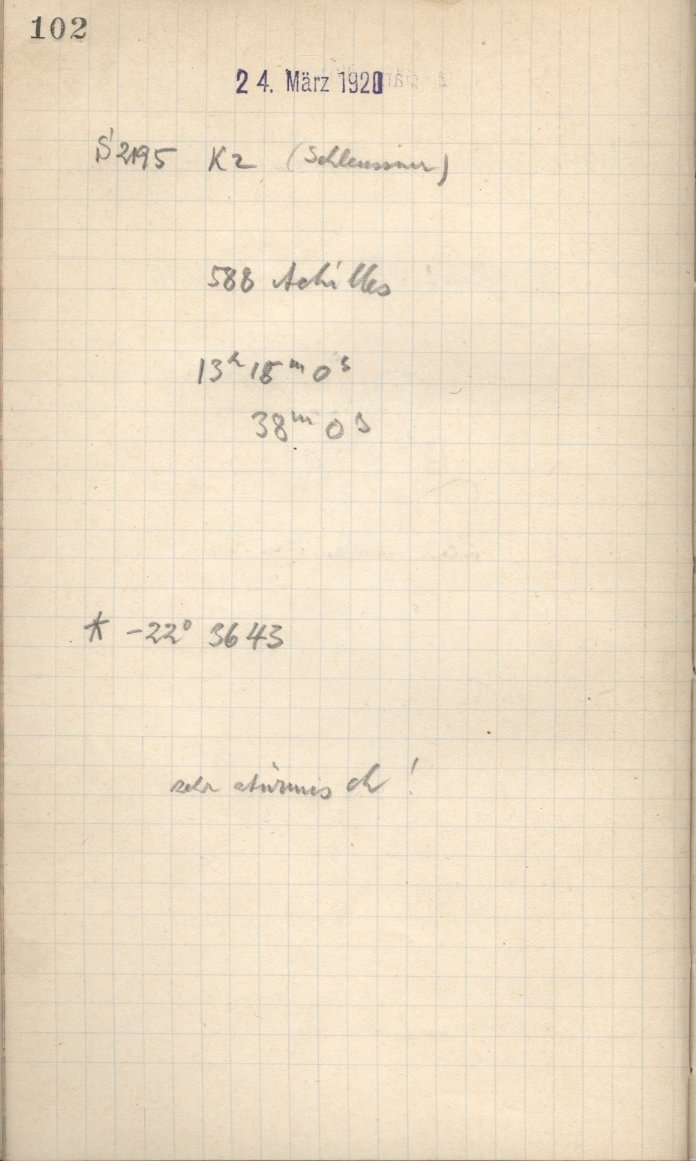 102
24. März 1920
S 2195 K2 (Schleussner)
588 Achilles
13ʰ 18ᵐ 0ˢ
38ᵐ 0ˢ
* -22° 3643
sehr stürmisch!